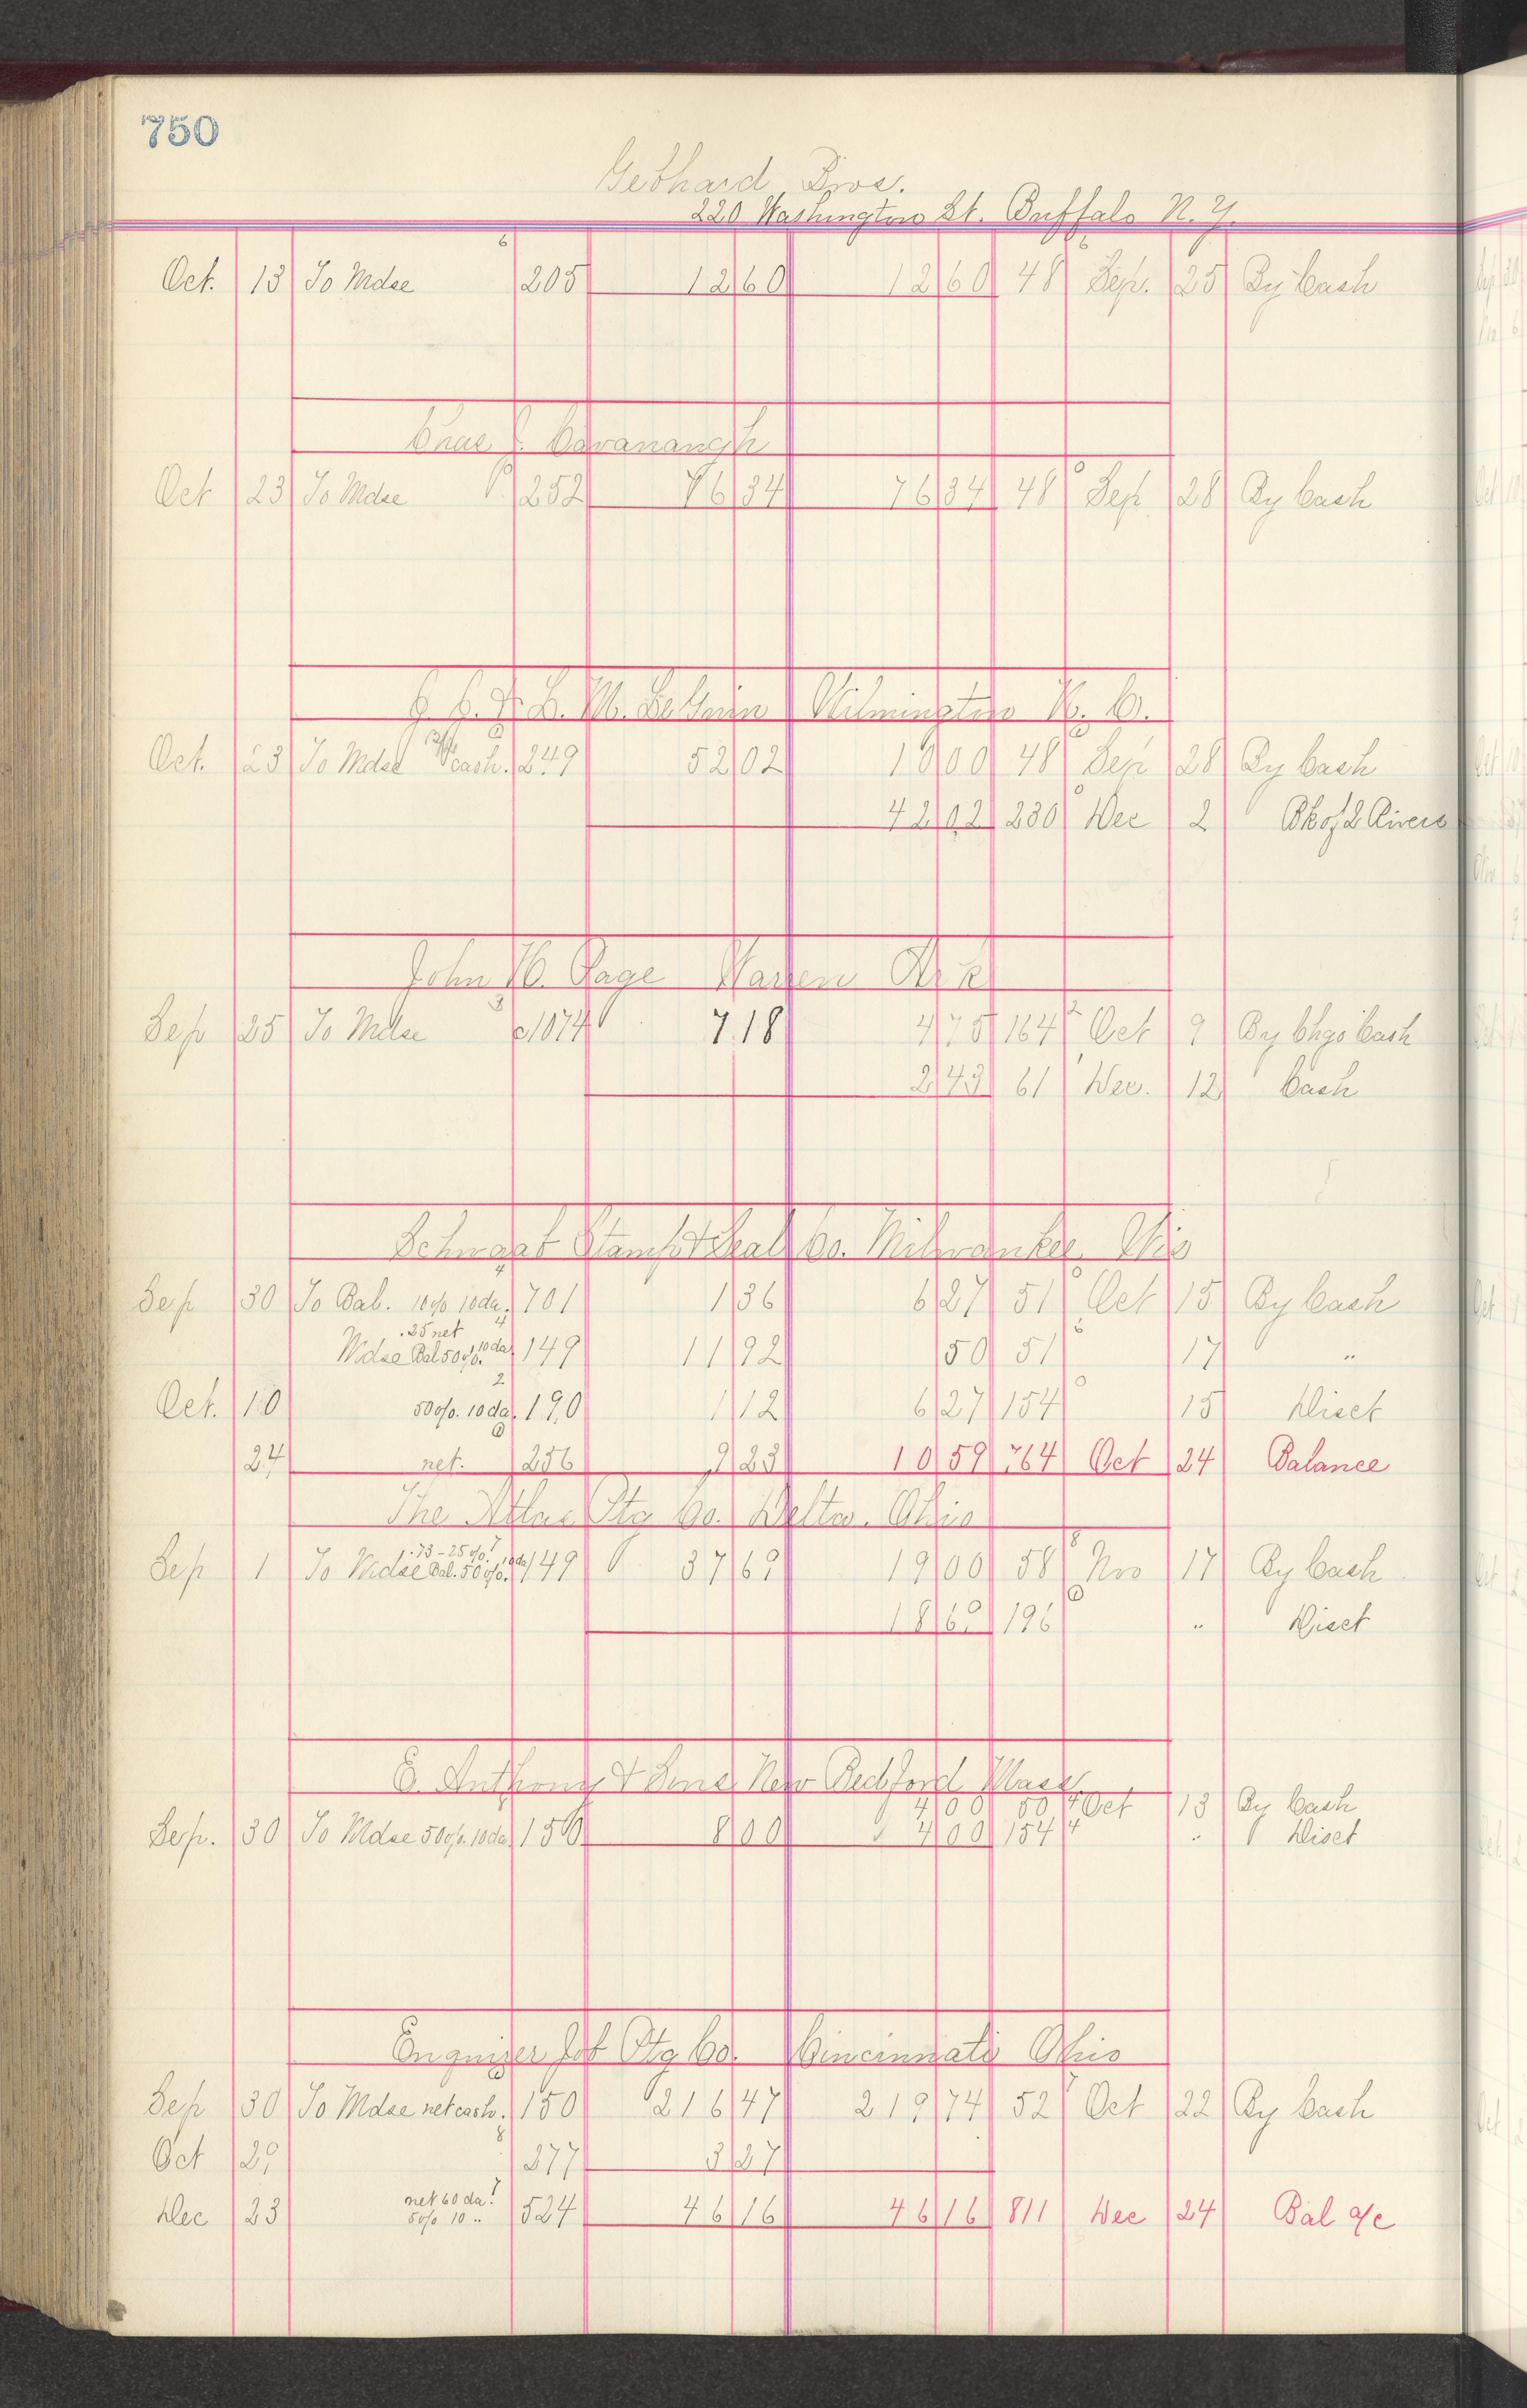 750
Gebhard Bros.
220 Washington St. Buffalo N. Y.
6 6
Oct. 13 To Mdse 205 12 60 12 60 48 Sep. 25 By Cash
Chas J. Cavanaugh
Oct 23 To Mdse 252 76 34 76 34 48 Sep 28 By Cash
Wilmington N. C.
Oct. 23 To Mdse cash. 249 52 02 10 00 48 Sep 28 By Cash
42 02 230 Dec 2 Bk of 2 Rivers
John H. Page Warren
Sep 25 To Mdse c1074 7.18 4 75 164 Oct 9 By Chgo Cash
2 43 61 Dec. 12 Cash
Schwaab Stamp & Seal Co. Milwaukee, Wis
Sep 30 To Bal. 10% 10 da. 701 1 36 6 27 51 Oct 15 By Cash
.25 net
Mdse Bal 50%. 10 da 149 11 92 50 51 17 "
Oct. 10 50%. 10 da. 190 1 12 6 27 154 15 Disct
24 net. 256 9 23 10 59 764 Oct 24 Balance
The Atlas Ptg Co. Delta. Ohio
1.73 - 25%.
Sep 1 To Mdse Bal. 50%. 10 da 149 37 69 19 00 58 Nov 17 By Cash
18 69 196 " Disct
E. Anthony & Sons New Bedford Mass.
4 00 50 Oct 13 By Cash
Sep. 30 To Mdse 50%. 10 da 150 8 00 4 00 154 " Disct
Enquirer Job Ptg Co. Cincinnati Ohio
Sep 30 To Mdse net cash. 150 216 47 219 74 52 Oct 22 By Cash
Oct 29 277 3 27
net 60 da.
Dec 23 5% 10 " 524 46 16 46 16 811 Dec 24 Bal a/c